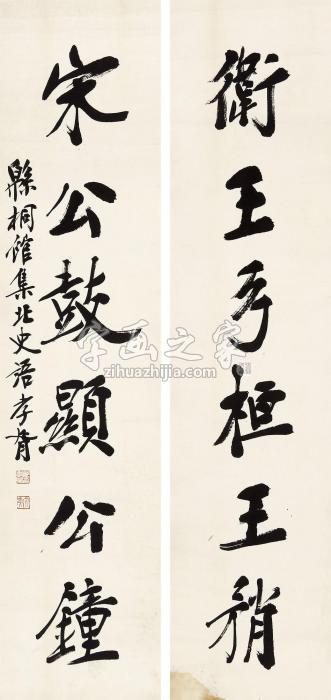 衛王弓桓王矟
宋公鼓顯公鐘
縣桐館集北史語孝胥
字画之家
zihuazhijia.com